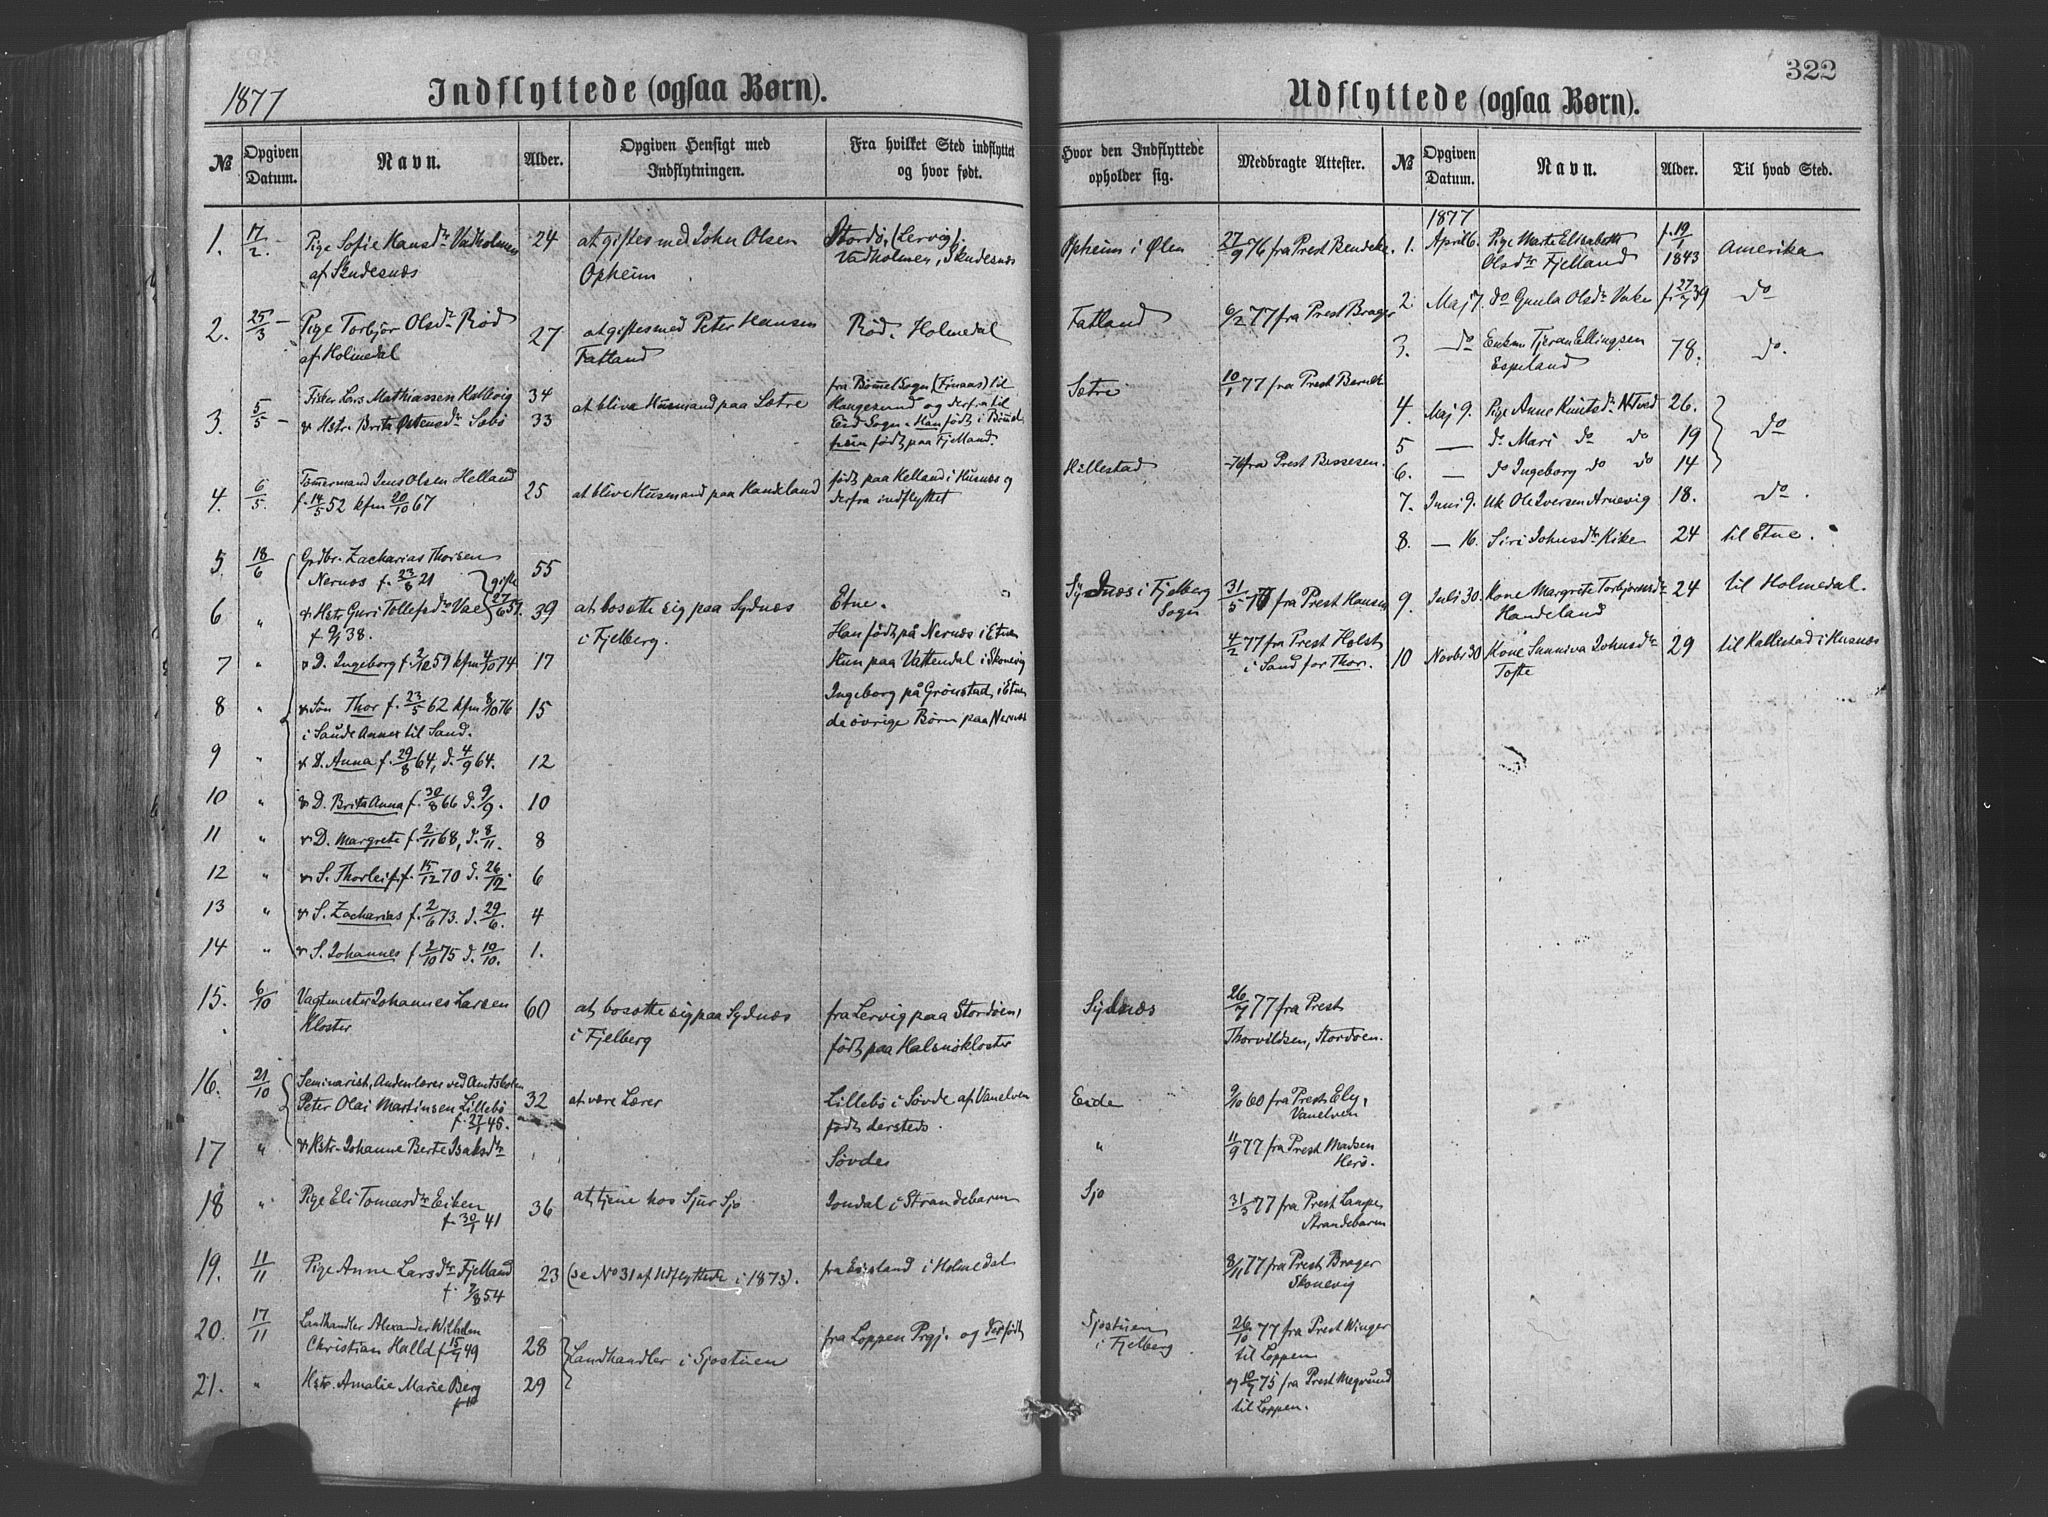 322
1877
Indflyttede (ogsaa Børn).
Udflyttede (ogsaa Børn).
№ Opgiven Datum. Navn. Alder. Opgiven Hensigt med Indflytningen. Fra hvilket Sted indflyttet og hvor født. Hvor den Indflyttede opholder sig. Medbragte Attester.
1. 17/2. Pige Sofie Hansdtr Vadholmen 24 at giftes med John Olsen Stordø, (Lervig) Opheim i Ølen 27/9 76 fra Prest Bendeke.
af Skudesnæs Opheim Vadholmen, Skudesnæs
2. 25/3 Pige Torbjør Olsdtr Rød 27 at giftes med Peter Hansen Rød. Holmedal Fatland 6/2 77 fra Prest Brager
af Holmedal Fatland
3. 5/5 Fisker Lars Mathiassen Kallevig 34 at blive Husmand paa Sætre fra Bømmel Sogn (Finaas) til Sætre 10/1 77 fra Prest
& Hstr. Brita Østensdtr Sæbø 33 Haugesund og derfra til
Eid Sogn. Han født i Bømmel
hun født paa Fjelland.
4. 6/5. Tømmermand Jens Olsen Helland 25 at blive Husmand paa Handeland født paa Helland i Husnæs og Hillestad -76 fra Prest Bessesen.
f. 14/5 52 kfm 20/10 67 derfra indflyttet
5. 18/6 Grdbr. Zacharias Thorsen 55
Nernæs f. 23/8 21 gifte 27/6 57.
6 " & Hstr Guri Tollefsdtr Vae 39 at bosætte sig paa Sydnæs Etne. Sydnæs i Fjelberg Sogn 31/5 76 fra Prest Hansen
f 9/1 38. i Fjelberg. Han født på Nernæs i Etne 4/2 77 fra Prest Holst
7 " & D. Ingeborg f. 2/12 59 kfm 4/10 74 17 Hun paa Vattendal i Skonevig i Sand for Thor.
8 " & Søn Thor f. 23/5 62 kfm 8/10 76 15 Ingeborg på Grønstad i Etne
i Saude Annex til Sand. de øvrige Børn paa Nernæs
9 " & D. Anna f. 29/8 64, d. 4/9 64. 12
10 " & D. Brita Anna f. 30/8 66 d. 9/9. 10
11 " & D. Margrete f. 2/11 68, d. 8/11 8
12 " & S. Thorleif f. 15/12 70 d. 26/12. 6
13 " & S. Zacharias f. 2/6 73. d. 29/6. 4
14 " & S. Johannes f. 2/10 75 d. 10/10. 1.
15. 6/10 Vagtmester Johannes Larsen 60 at bosætte sig paa Sydnæs fra Lervig paa Stordøen, Sydnæs 26/7 77 fra Prest
Kloster i Fjelberg født paa Halsnøkloster Thorvildsen, Stordøen.
16. 21/10 Seminarist, Andenlærer ved Amtskolen
Peter Olai Martinsen Lillebø 32 at være Lærer Lillebø i Søvde af Vanelven Eide 9/10 60 fra Prest Ely,
f. 27/1 45. født dersteds. Vanelven
17 " & Hstr. Johanne Berte Isaksdtr Søvde " 11/9 77 fra Prest Madsen
Herø.
18 " Pige Eli Tomasdtr Eiken 36 at tjene hos Sjur Sjo Jondal i Strandebarm Sjo 31/5 77 fra Prest Lampe
f. 30/1 41 Strandebarm
19. 11/11 Pige Anne Larsdtr Fjelland 23 (se No 31 af Udflyttede i 1873). fra Espeland i Holmedal 8/11 77 fra Prest Brager
f. 9/8 54 Skonevig
20. 17/11 Landhandler Alexander Wilhelm fra Loppen Prgj. og der født Sjostuen 26/10 77 fra Prest Winger
Christian Halld f 15/7 49 28 Landhandler i Sjostuen i Fjelberg til Loppen
21. " Hstr. Amalie Marie Berg 29 og 75 fra Prest
til Loppen.
№ Opgiven Datum. Navn. Alder. Til hvad Sted.
1877
1. April 6. Pige Marte Elisabeth f. 19/1 1843 Amerika
Olsdtr Fjelland
2. Maj 7. do Gunla Olsdtr Vake f. 27/7 39 do
3. — do Enkm Tjeran Ellingsen 78. do.
Espeland
4. Maj 9. Pige Anne Knutsdtr N.tved 26.
5 — do Mari do do 19 do
6. — do Ingeborg do do 14
7. Juni 9. Uk Ole Iversen Arnevig 18. do.
8. — 16. Siri Johnsdtr Kike 24 til Etne.
9. Juli 30. Kone Margrete Torbjørnsdtr 24 til Holmedal.
Handeland
10 Novbr 30 Kone Sunniva Johnsdtr 29 til Kallestad i Husnæs
Tofte